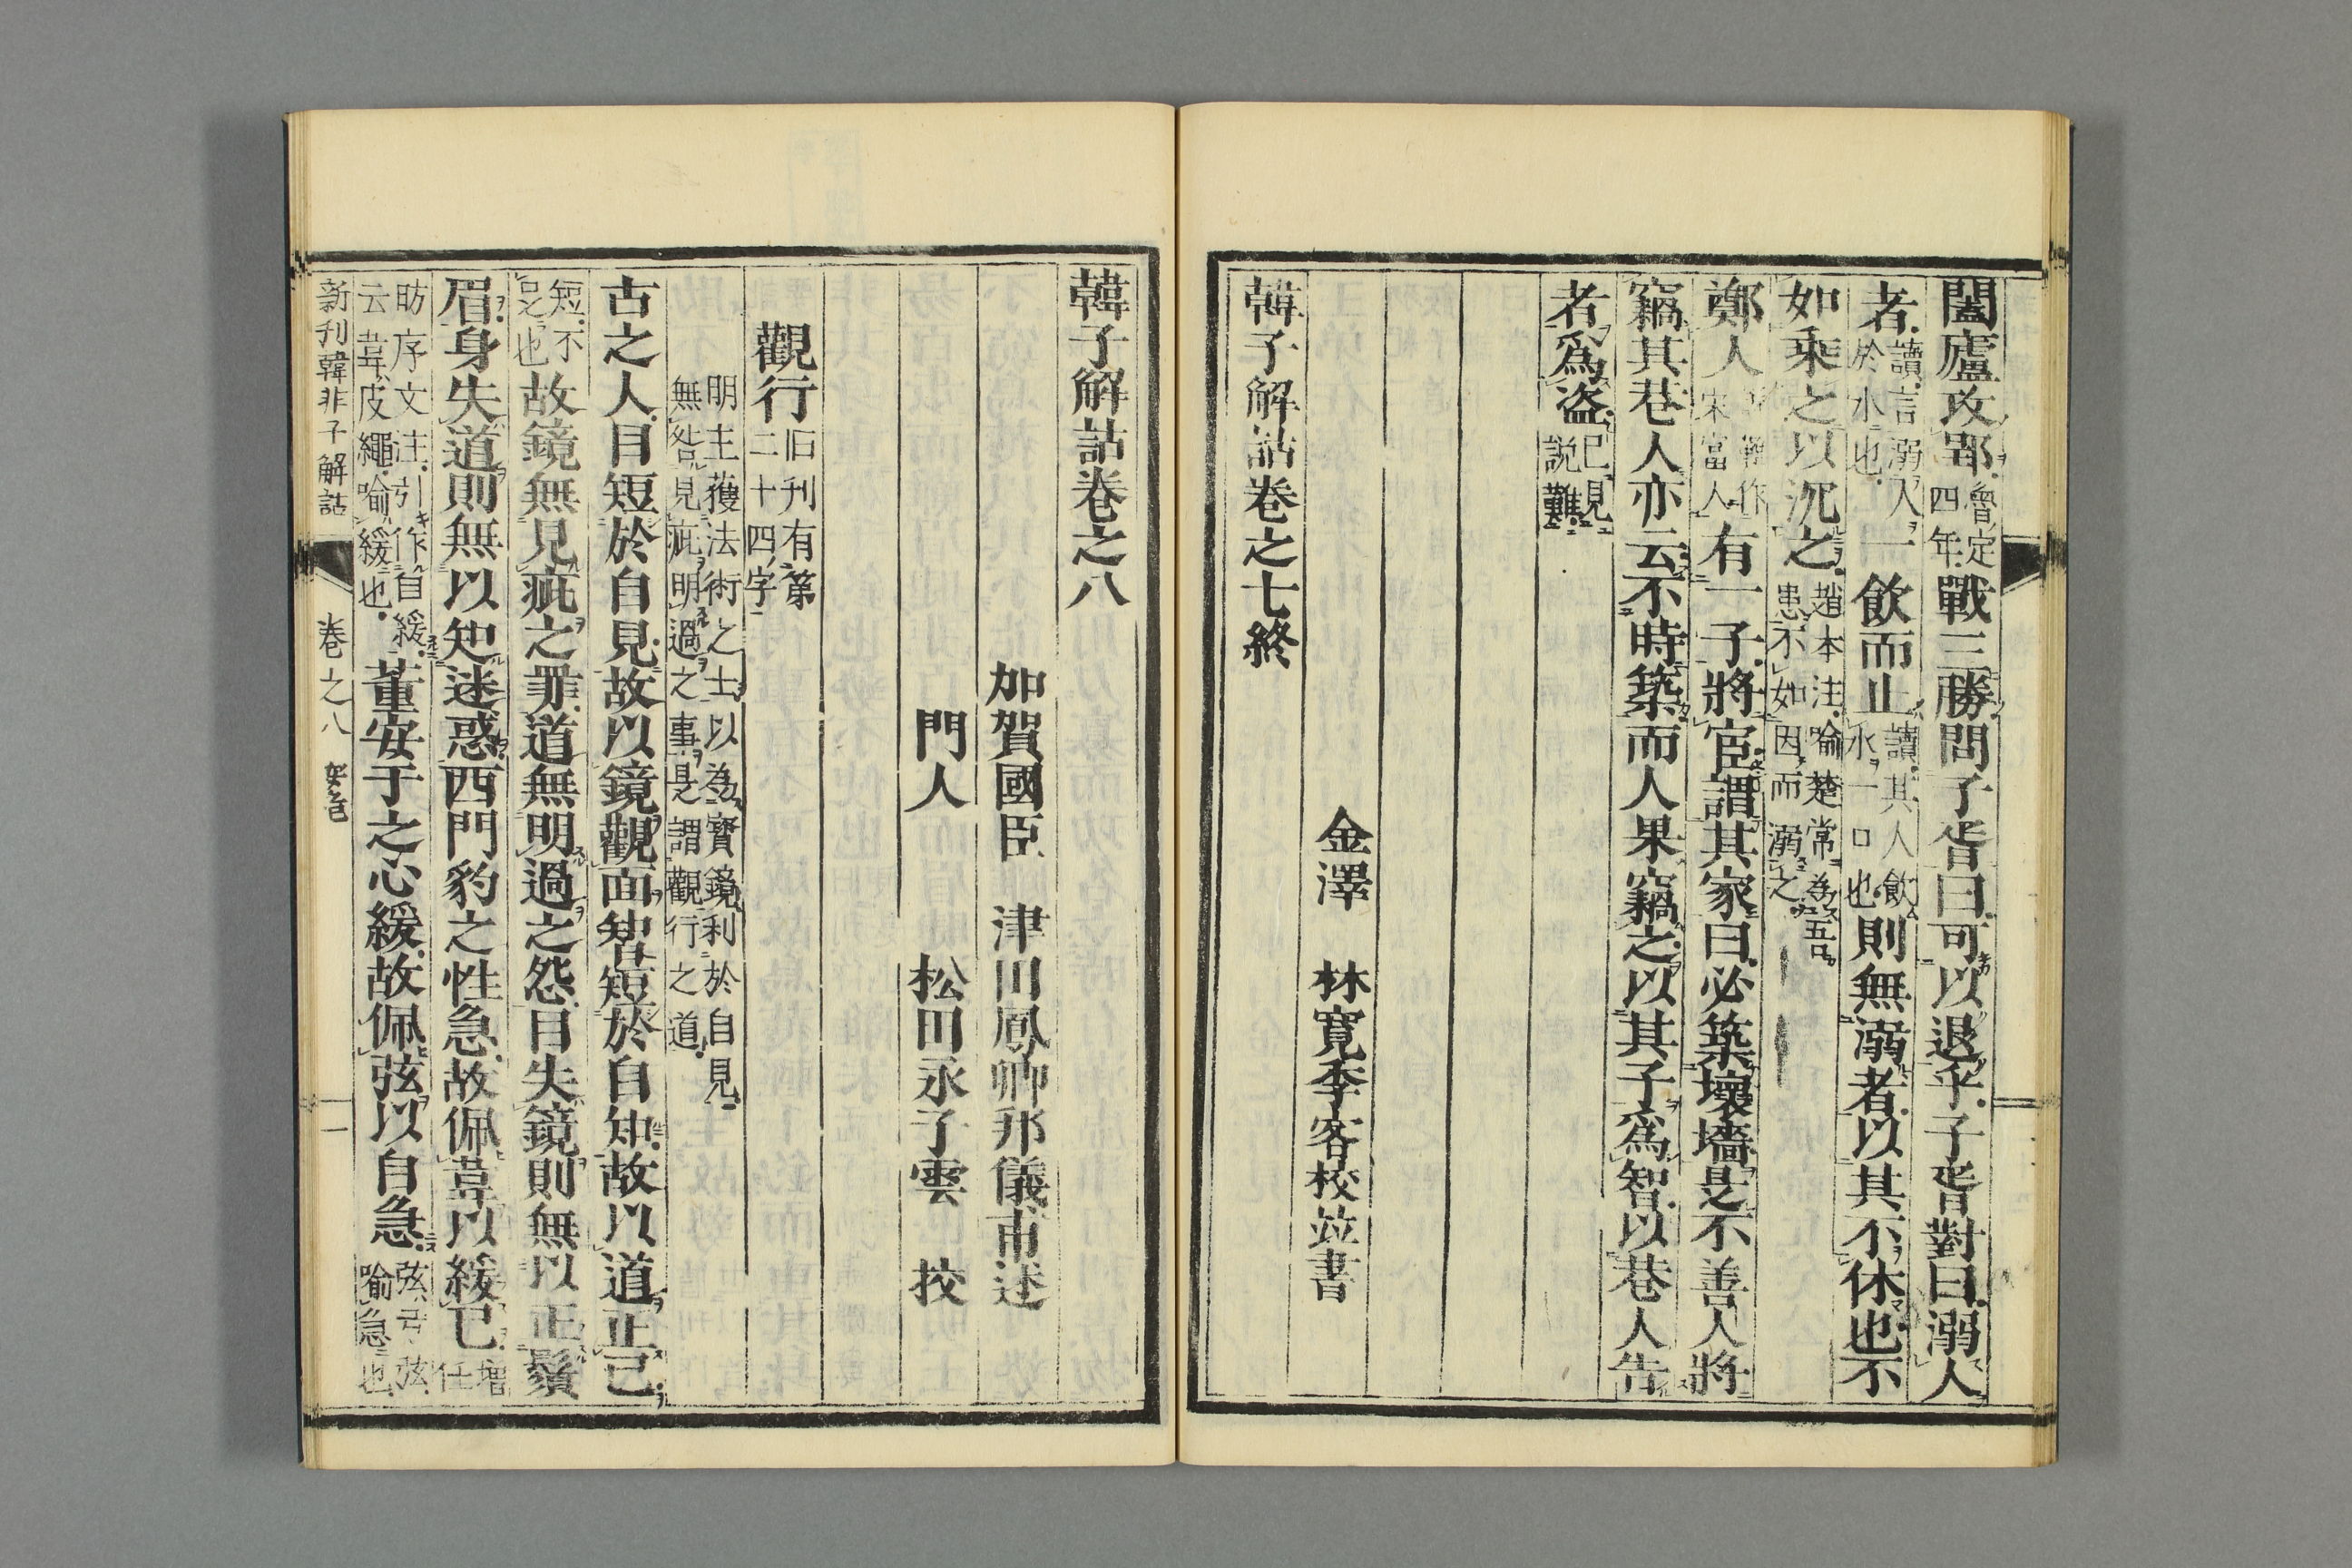 闔廬攻郢魯定四年戰三勝問子胥曰可以退乎子胥對曰溺人
者讀言溺人於水也一飮而止讀其人飮水一口也則無溺者以其不休也不
如乘之以沉之趙本注喻楚常爲吾患不如因而溺之
鄭人宋富人有一子將宦謂其家曰必築壞墻是不善人將
竊其巷人亦云不時築而人果竊之以其子爲智以巷人告
者爲盜已見説難
金澤　林寛季客校竝書
韓子解詁卷之七終
韓子解詁卷之八
加賀國臣　津田鳳卿邦儀甫述
門人　松田永子雲　挍
觀行旧刊有第二十四字
明主獲法術之士以爲寳鏡利於自見無咎見疵明過之事是謂觀行之道
古之人目短於自見故以鏡觀面智短於自知故以道正己
短不足也故鏡無見疵之罪道無明過之怨目失鏡則無以正鬚
眉身失道則無以知迷惑西門豹之性急故佩韋以緩己增任
昉序文注引作自緩云韋皮繩喻緩也董安于之心緩故佩弦以自急弦弓弦喻急也
新刊韓非子解詁　卷之八　一